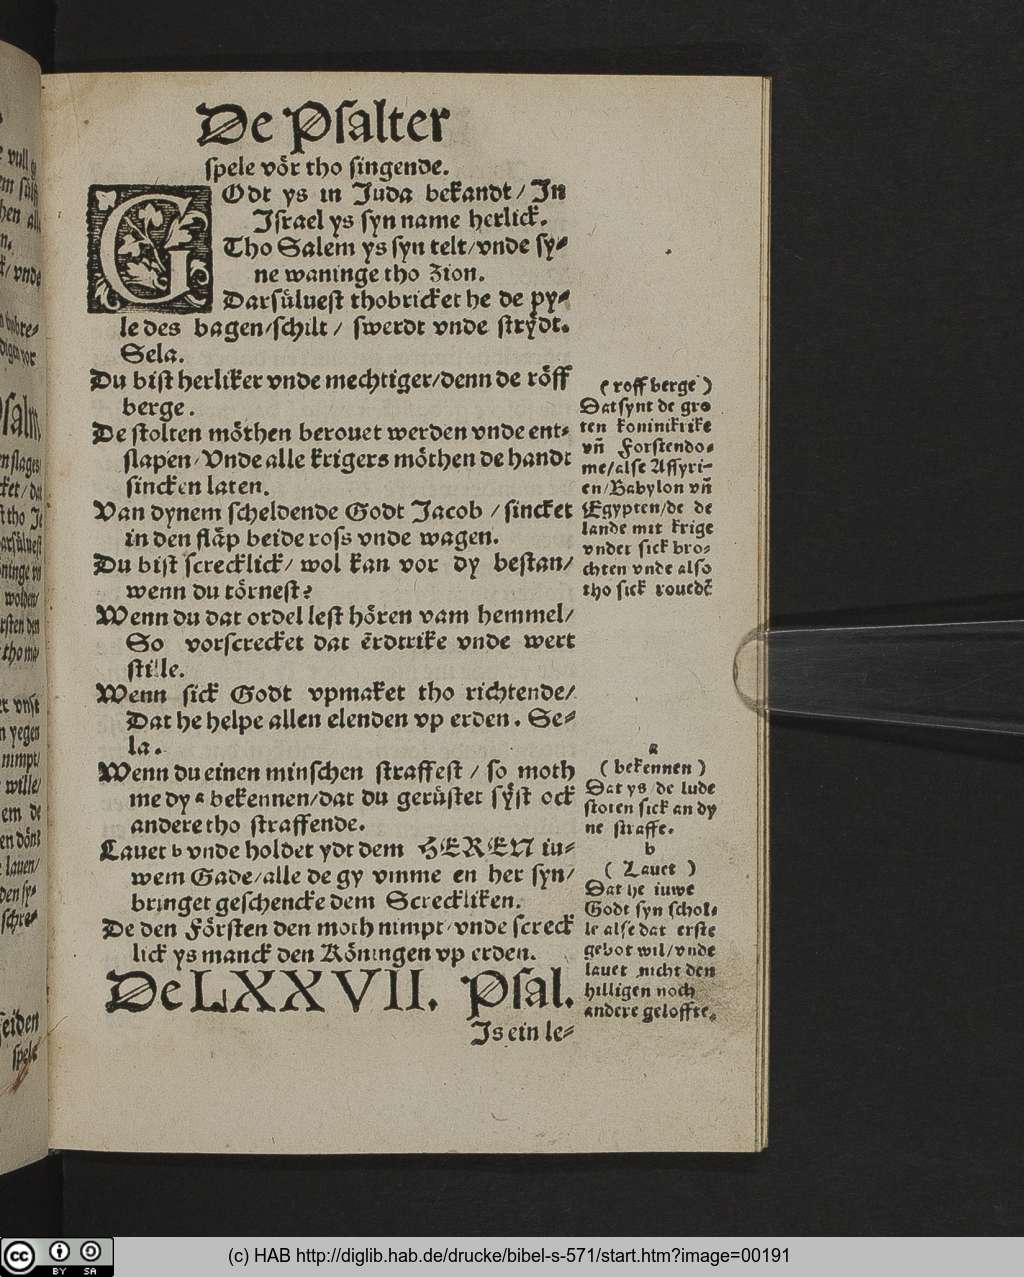 De Psalter
spele vör tho singende.
GOdt ys in Juda bekandt / In
Israel ys syn name herlick.
Tho Salem ys syn telt / vnde sy-
ne waninge tho Zion.
Darsüluest thobricket he de py-
le des bagen / schilt / swerdt vnde strydt.
Sela.
Du bist herliker vnde mechtiger / denn de röff
berge.
De stolten möthen berouet werden vnde ent-
slapen / Vnde alle krigers möthen de handt
sincken laten.
Van dynem scheldende Godt Jacob / sincket
in den slap beide ross vnde wagen.
Du bist screcklick / wol kan vor dy bestan /
wenn du törnest?
Wenn du dat ordel lest hören vam hemmel /
So vorscrecket dat erdtrike vnde wert
stille.
Wenn sick Godt vpmaket tho richtende /
Dat he helpe allen elenden vp erden. Se-
la.
Wenn du einen minschen straffest / so moth
me dy a bekennen / dat du gerüstet syst ock
andere tho straffende.
Lauet b vnde holdet ydt dem HEREN iu-
wem Gade / alle de gy vmme en her syn /
bringet geschencke dem Screckliken.
De den Försten den moth nimpt / vnde screck
lick ys manck den Köningen vp erden.
De LXXVII. Psal.
Js ein le-
( roff berge )
Dat synt de gro
ten koninkrike
vñ Forstendo-
me / alse Assyri-
en / Babylon vñ
Egypten / de de
lande mit krige
vnder sick bro-
chten vnde also
tho sick rouedē
a
( bekennen )
Dat ys de lude
stoten sick an dy
ne straffe.
b
( Lauet )
Dat he iuwe
Godt syn schol-
le alse dat erste
gebot wil / vnde
lauet nicht den
hilligen noch
andere geloffte.
(c) HAB http://diglib.hab.de/drucke/bibel-s-571/start.htm?image=00191
cc BY SA